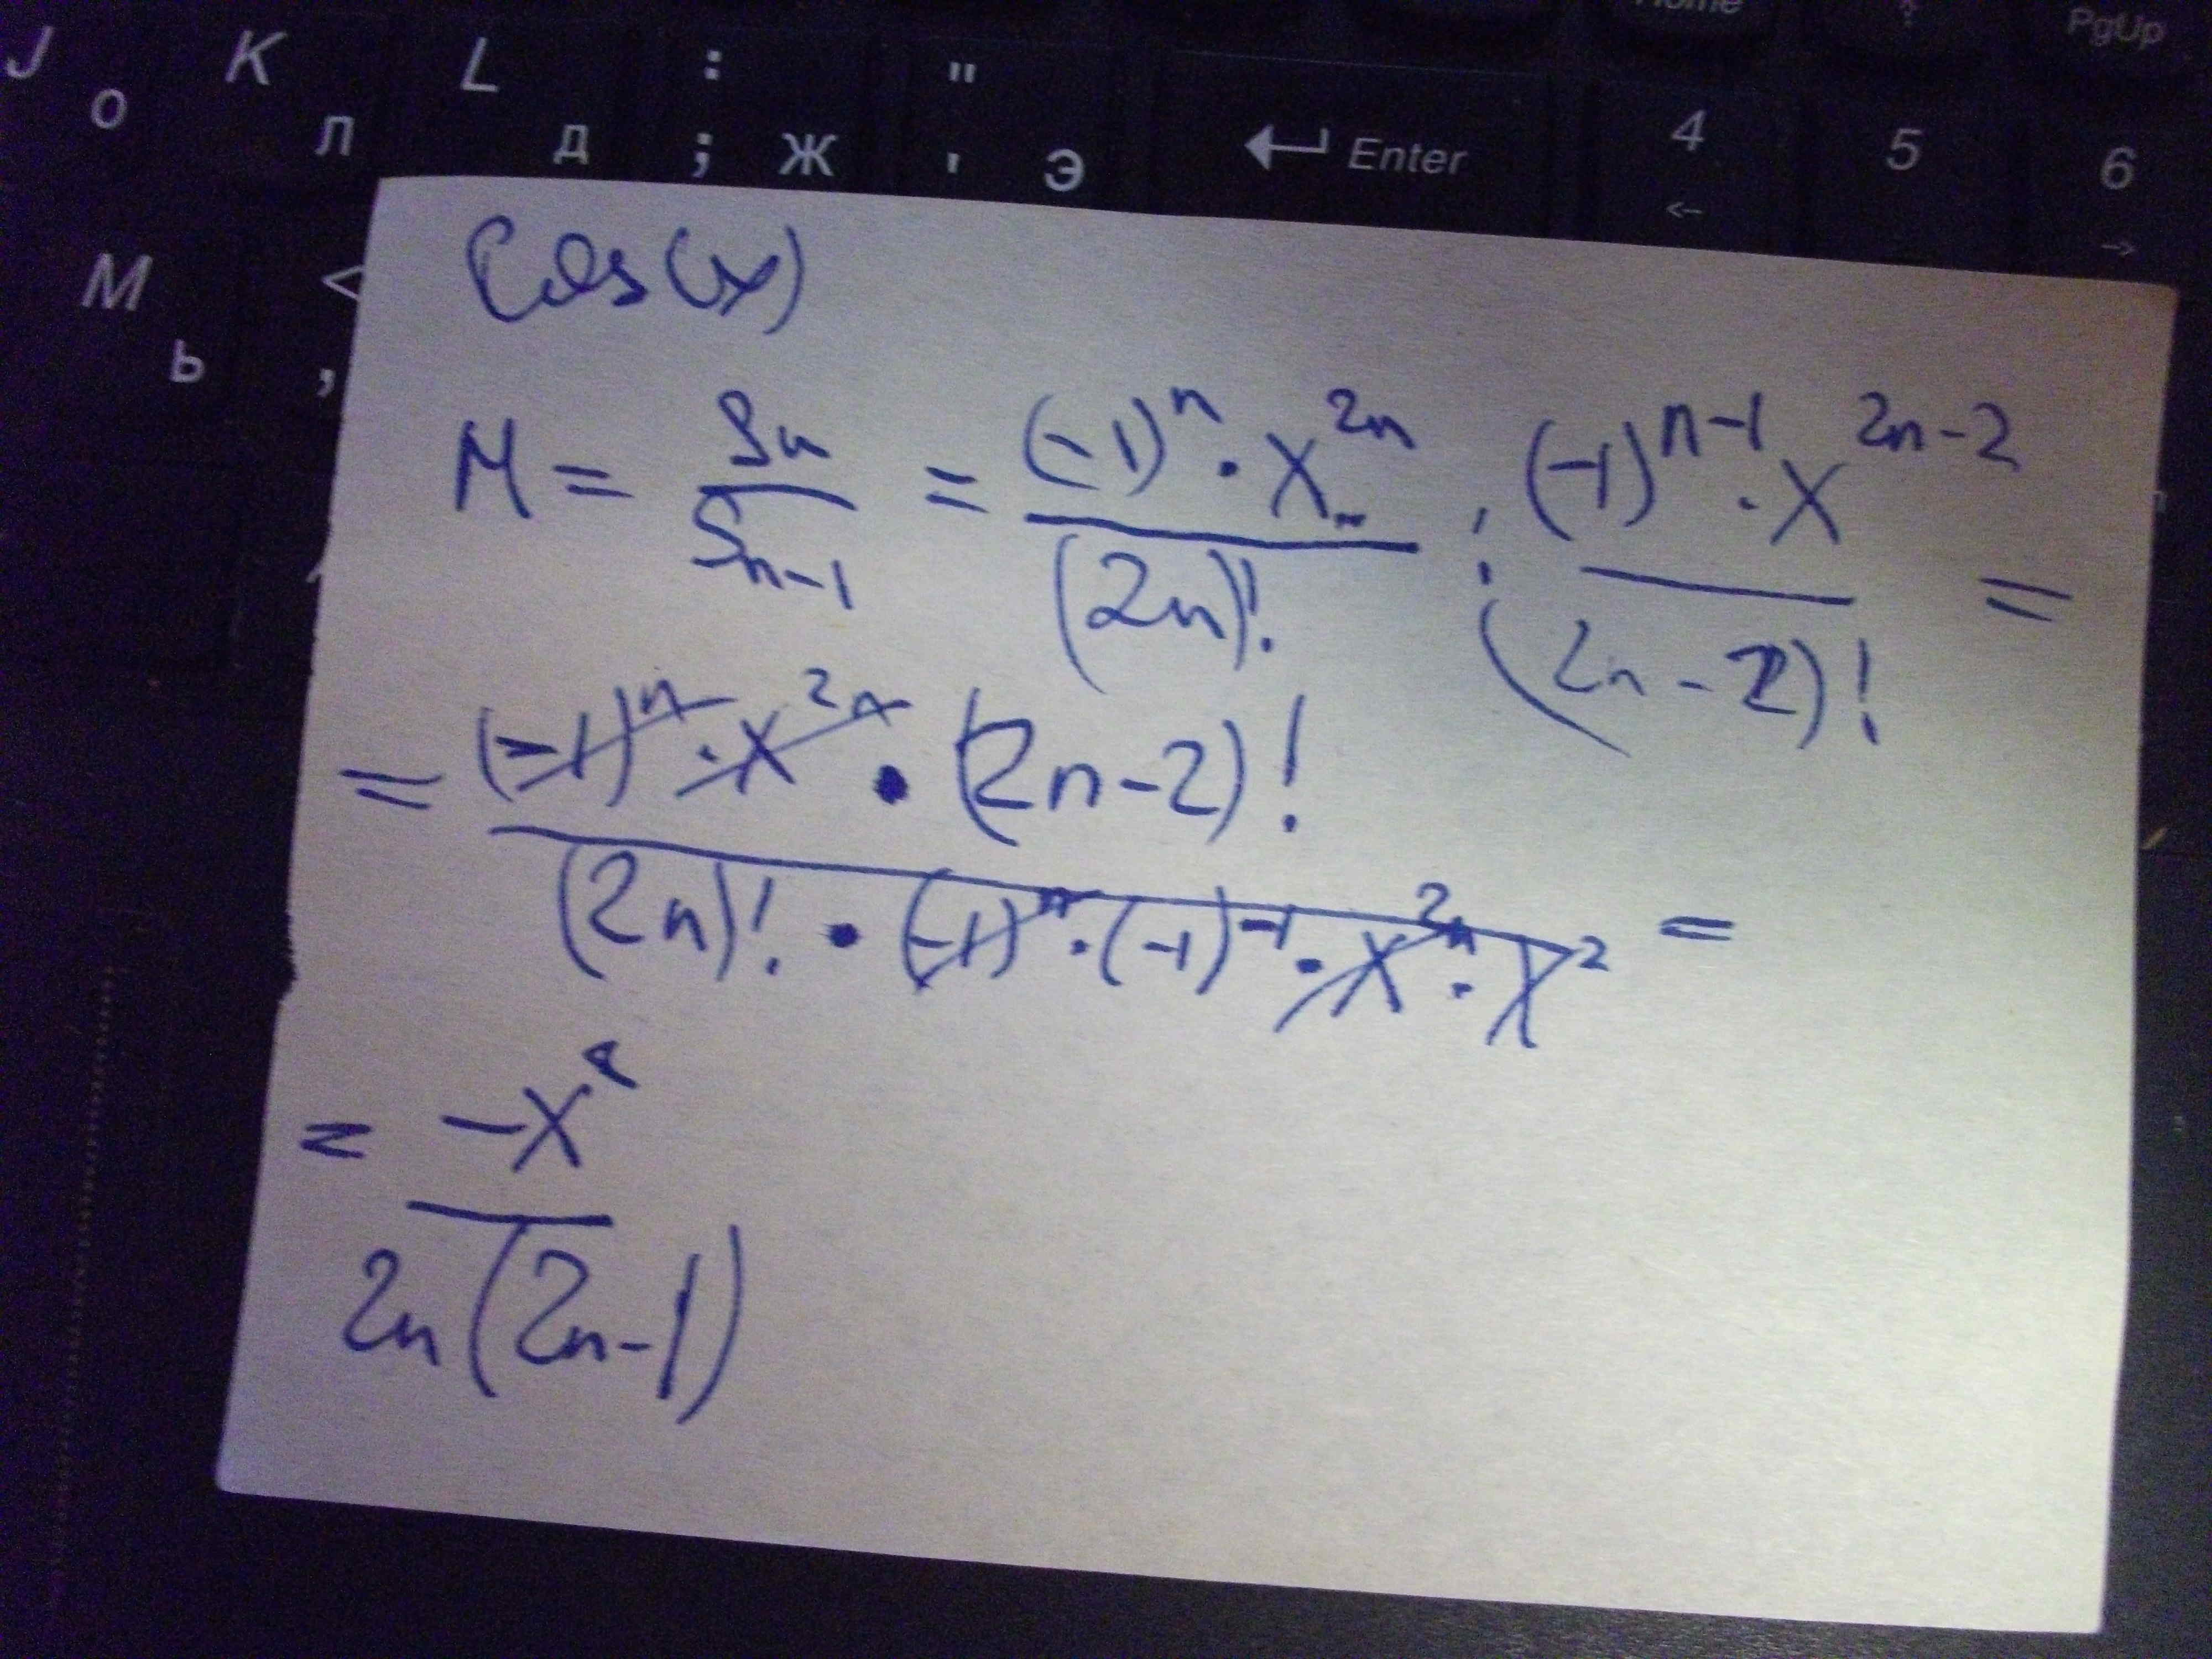 J K L : " Home PgUp
о л д ; ж ' э Enter 4 5 6
M < ← →
ь ,
Cos(x)
M = Sn / Sn-1 = (-1)^n · x^2n / (2n)! : (-1)^n-1 · x^2n-2 / (2n-2)! =
= (-1)^n · x^2n · (2n-2)! / (2n)! · (-1)^n · (-1)^-1 · x^2n · x^2 =
= -x^2 / 2n(2n-1)